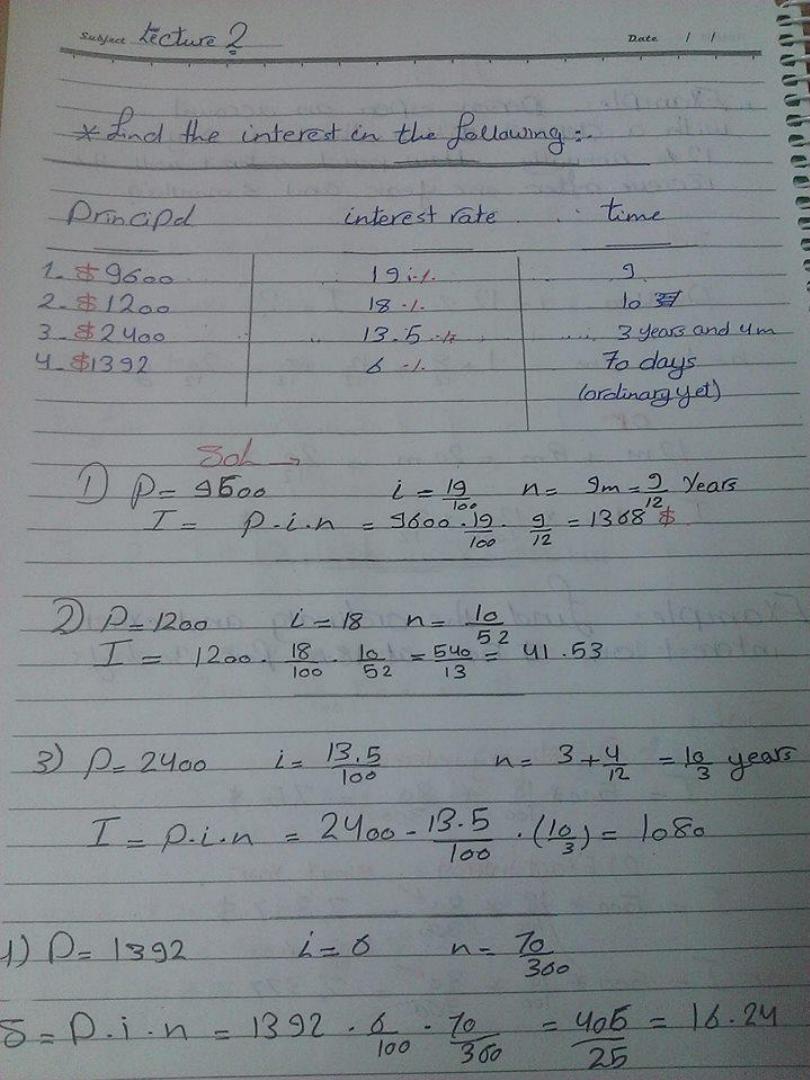 Subject Lecture 2 Date / /
* find the interest in the following :-
Principal interest rate time
1- $9600 19 % 9
2- $1200 18 % 10
3- $2400 13.5 % 3 years and 4m
4- $1392 6 % 70 days
(ordinary yet)
Sol
1) P= 9600 i = 19/100 n= 9m = 9/12 Years
I = P.i.n = 9600 . 19/100 . 9/12 = 1368 $
2) P= 1200 i = 18 n= 10/52
I = 1200 . 18/100 . 10/52 = 540/13 = 41.53
3) P= 2400 i= 13.5/100 n= 3 + 4/12 = 10/3 years
I = P.i.n = 2400 - 13.5/100 . (10/3) = 1080
1) P= 1392 i= 6 n= 70/360
= P.i.n = 1392 . 6/100 . 70/360 = 406/25 = 16.24